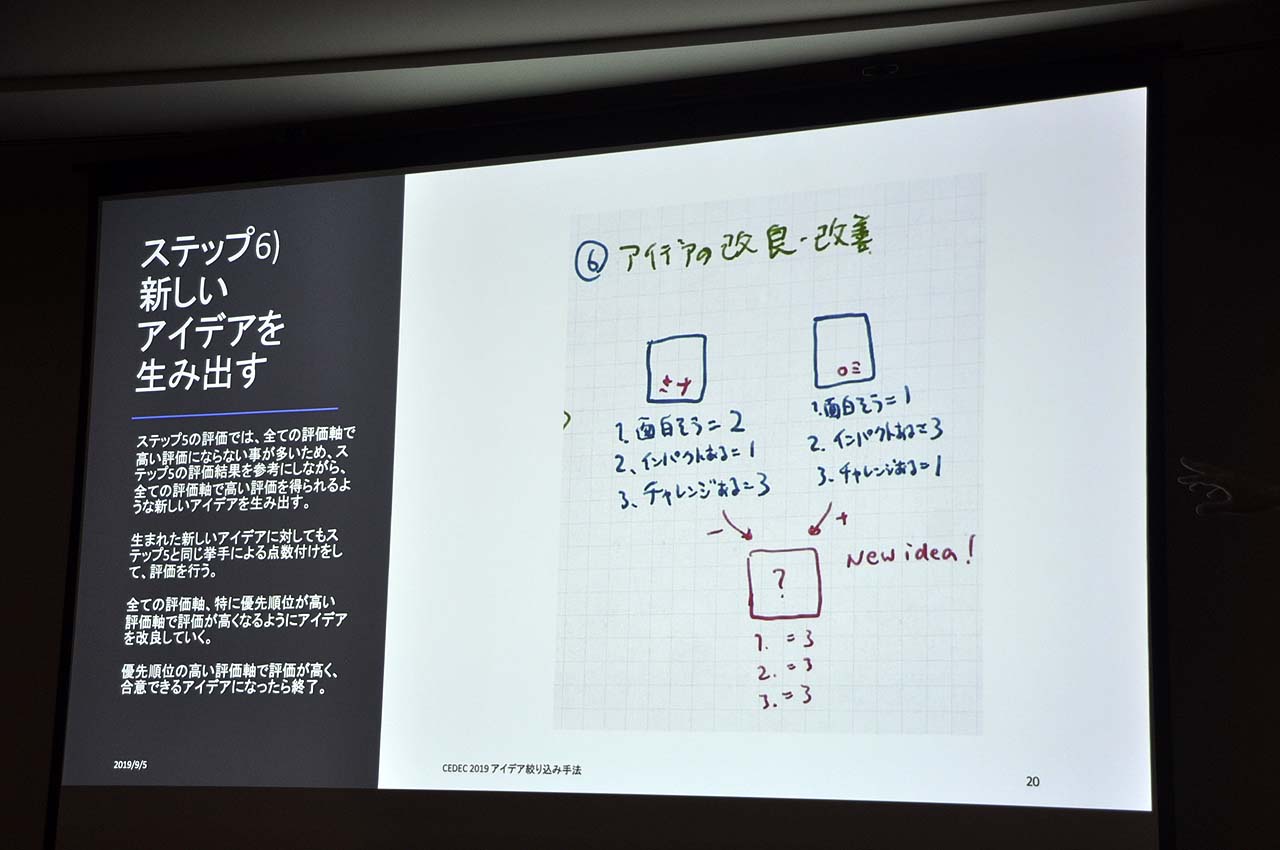 ステップ6)
新しい
アイデアを
生み出す
ステップ5の評価では、全ての評価軸で
高い評価にならない事が多いため、ス
テップ5の評価結果を参考にしながら、
全ての評価軸で高い評価を得られるよ
うな新しいアイデアを生み出す。
生まれた新しいアイデアに対してもス
テップ5と同じ挙手による点数付けをし
て、評価を行う。
全ての評価軸、特に優先順位が高い
評価軸で評価が高くなるようにアイデア
を改良していく。
優先順位の高い評価軸で評価が高く、
合意できるアイデアになったら終了。
2019/9/5
⑥ アイデアの改良・改善
1. 面白そう=2
2、インパクトある=1
3、チャレンジある=3
1.面白そう=1
2. インパクトある=3
3. チャレンジある=1
-
+
New idea!
?
1. =3
2. =3
3. =3
CEDEC 2019 アイデア絞り込み手法
20